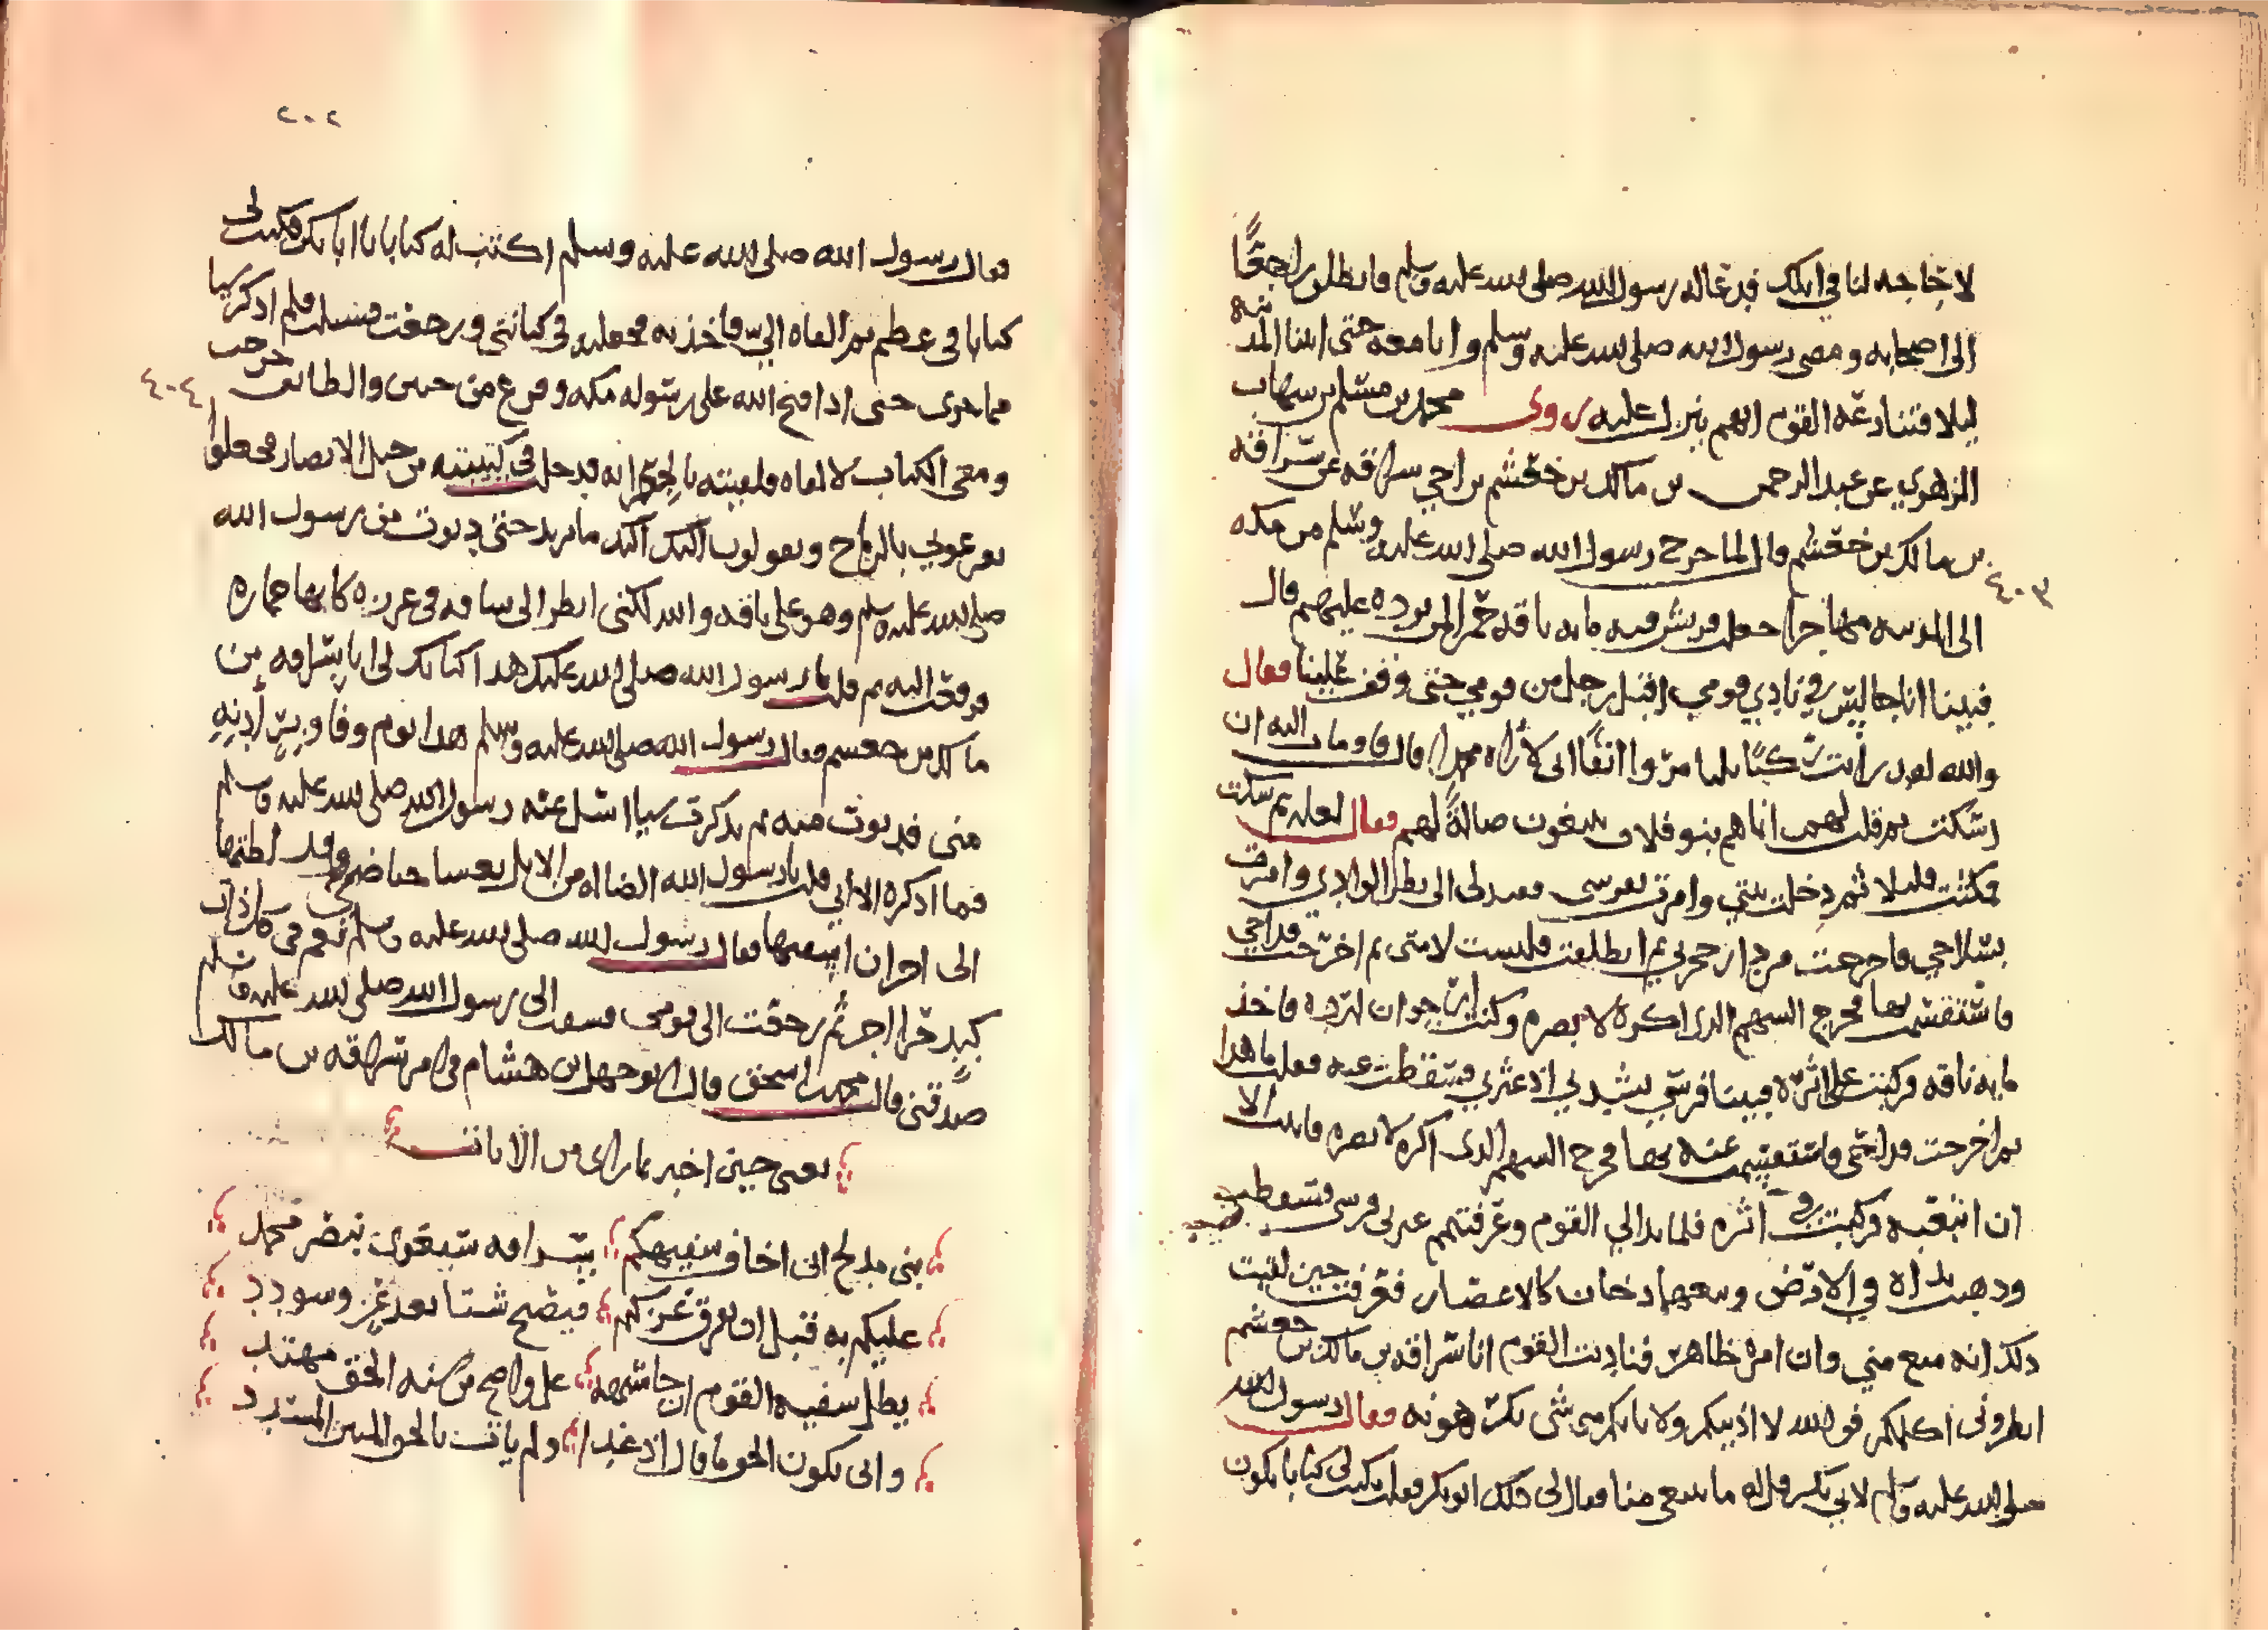 لا حاجه لنا في ابلك فدعا له رسول الله صلى الله عليه وسلم فانطلق راجعًا
الى اصحابه ومضى رسول الله صلى الله عليه وسلم وانا معه حتى اتينا المدينه
ليلا فتنازعه القوم ايهم ينزل عليه روى محمد بن مسلم بن شهاب
الزهري عن عبد الرحمن بن مالك بن جعشم بن اخي سراقه عن سراقه
بن مالك بن جعشم قال لما خرج رسول الله صلى الله عليه وسلم من مكه
٤٠٣
الى المدينه مهاجرا جعلت قريش فيه مايه ناقه حمر لمن يرده عليهم قال
فبينا انا جالس في نادي قومي اقبل رجل من قومي حتى وقف علينا فقال
والله لقد رايت ركبًا ثلثا مروا انفًا اني لأراه محمدا قال فاومات اليه ان
اسكت ثم قلت لهم انما هم بنو فلان يبتغون ضالةً لهم فقال لعله ثم سكت
فمكثت قليلا ثم دخلت بيتي وامرت بفرسي فقيد لي الى بطن الوادي وامرت
بسلاحي فاخرجت من دار حجرتي ثم انطلقت فلبست لامتي ثم اخرجت قداحي
فاستقسمت بها فخرج السهم الذي اكره لا يضره وكنت ارجوا ان ارده فاخذ
مايه ناقه فركبت على اثره فبينا فرسي يشتد بي اذ عثر بي فسقطت عنه فقلت ما هذا
ثم اخرجت قداحي فاستقسمت عنه بها فخرج السهم الذي اكره لا يضره فابيت الا
ان اتبعه فركبت في اثره فلما بدا لي القوم وعرفتهم عثر بي فرسي فسقطت
وذهبت يداه في الارض وتبعهما دخان كالاعصار فعرفت حين لقيت
ذلك انه منع مني وان امره ظاهر فناديت القوم انا سراقه بن مالك بن جعشم
انظروني اكلمكم فوالله لا اذيبكم ولا ياتيكم مني شي تكرهونه فقال رسول الله
صلى الله عليه وسلم لابي بكر قل له ما تبتغي منا فقال لي ذلك ابو بكر فقلت تكتب لي كتابا يكون
٢٠٢
فقال رسول الله صلى الله عليه وسلم اكتب له كتابا يا ابا بكر فكتب لي
كتابا في عظم ثم القاه الي فاخذته فجعلته في كنانتي ورجعت فسكت فلم اذكر شيا
مما جرى حتى اذا فتح الله على رسوله مكه وفرغ من حنين والطائف خرجت
٤٠٤
ومعي الكتاب لالقاه فلقيته بالجعرانه فدخلت في كتيبته من خيل الانصار فجعلوا
يقرعوني بالرماح ويقولون اليك اليك ما تريد حتى دنوت من رسول الله
صلى الله عليه وسلم وهو على ناقه والله لكني انظر الى ساقه في غرزه كانها جماره
فرفعت اليه ثم قلت يا رسول الله صلى الله عليك هذا كتابك لي انا سراقه بن
مالك بن جعشم فقال رسول الله صلى الله عليه وسلم هذا يوم وفا وبر أدنه
مني فدنوت منه ثم تذكرت شيا اسل عنه رسول الله صلى الله عليه وسلم
فما اذكره الا اني قلت يا رسول الله الضاله من الابل يغشا حياضي وقد لطتها
الى اجر ان اسقيها فقال رسول الله صلى الله عليه وسلم نعم في كل ذات
كبدٍ حرا اجر ثم رجعت الى قومي فسقت الى رسول الله صلى الله عليه وسلم
صدقتي قال محمد بن اسحق قال ابو جهل بن هشام في امر سراقه بن مالك
يعني حين اخبر بما راى من الايات
بني مدلج اني اخاف سفيهكم سراقه سيغوي بنصر محمد
عليكم به قبل ان يفرق عزكم فيصبح شتا بعد عز وسودد
يظل سفيه القوم ان جا شبهه على واضح من سنه الحق مهتد
وانى يكون الحق ما قال اذ غدا ولم يات بالحق المبين المسدد